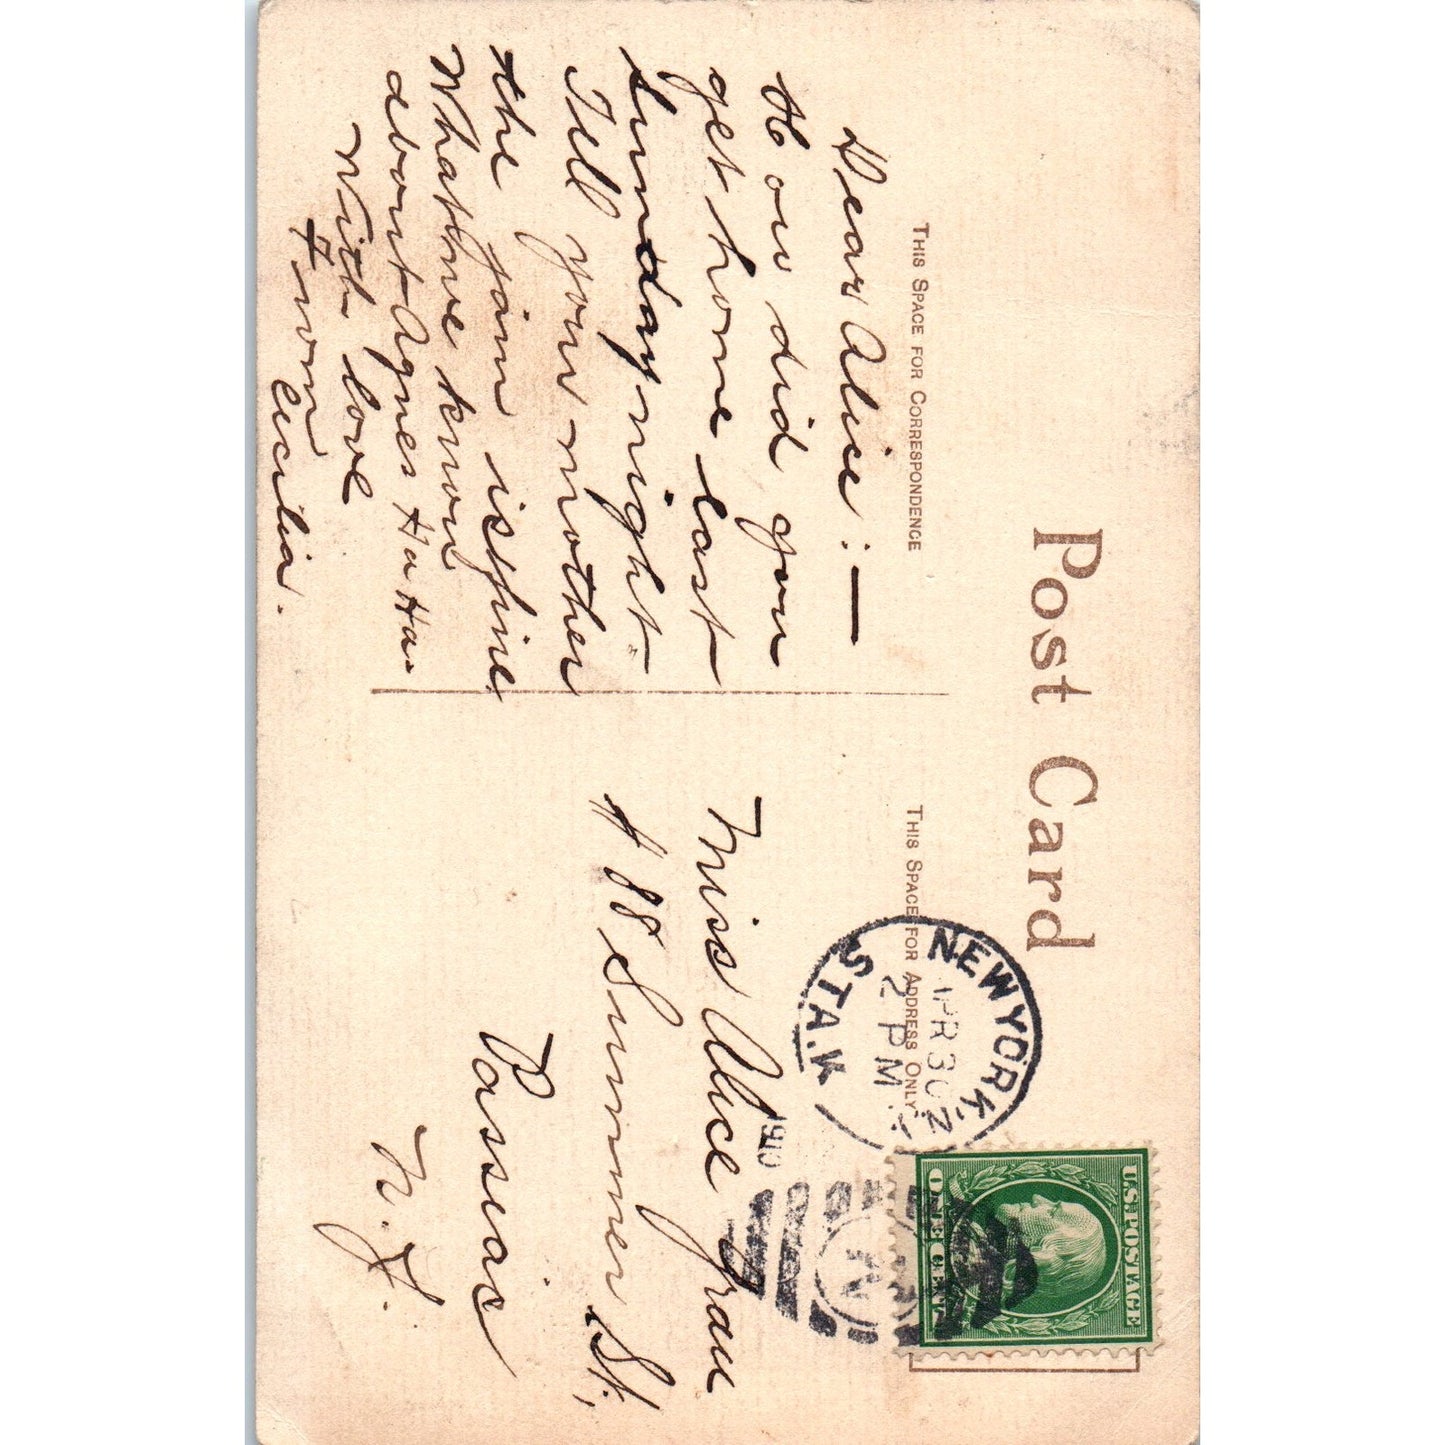 Post Card
THIS SPACE FOR CORRESPONDENCE
Dear Alice:—
How did you
get home last
Sunday night
Tell your mother
the jam is fine
What we know
about Agnes Ha Ha.
With love
From
Cecilia.
THIS SPACE FOR ADDRESS ONLY
NEW YORK, N.Y.
APR 30
2 PM
1910
STA.
N
U.S. POSTAGE
ONE CENT
Miss Alice Grau
# 88 Summer St.
Passaic
N.J.